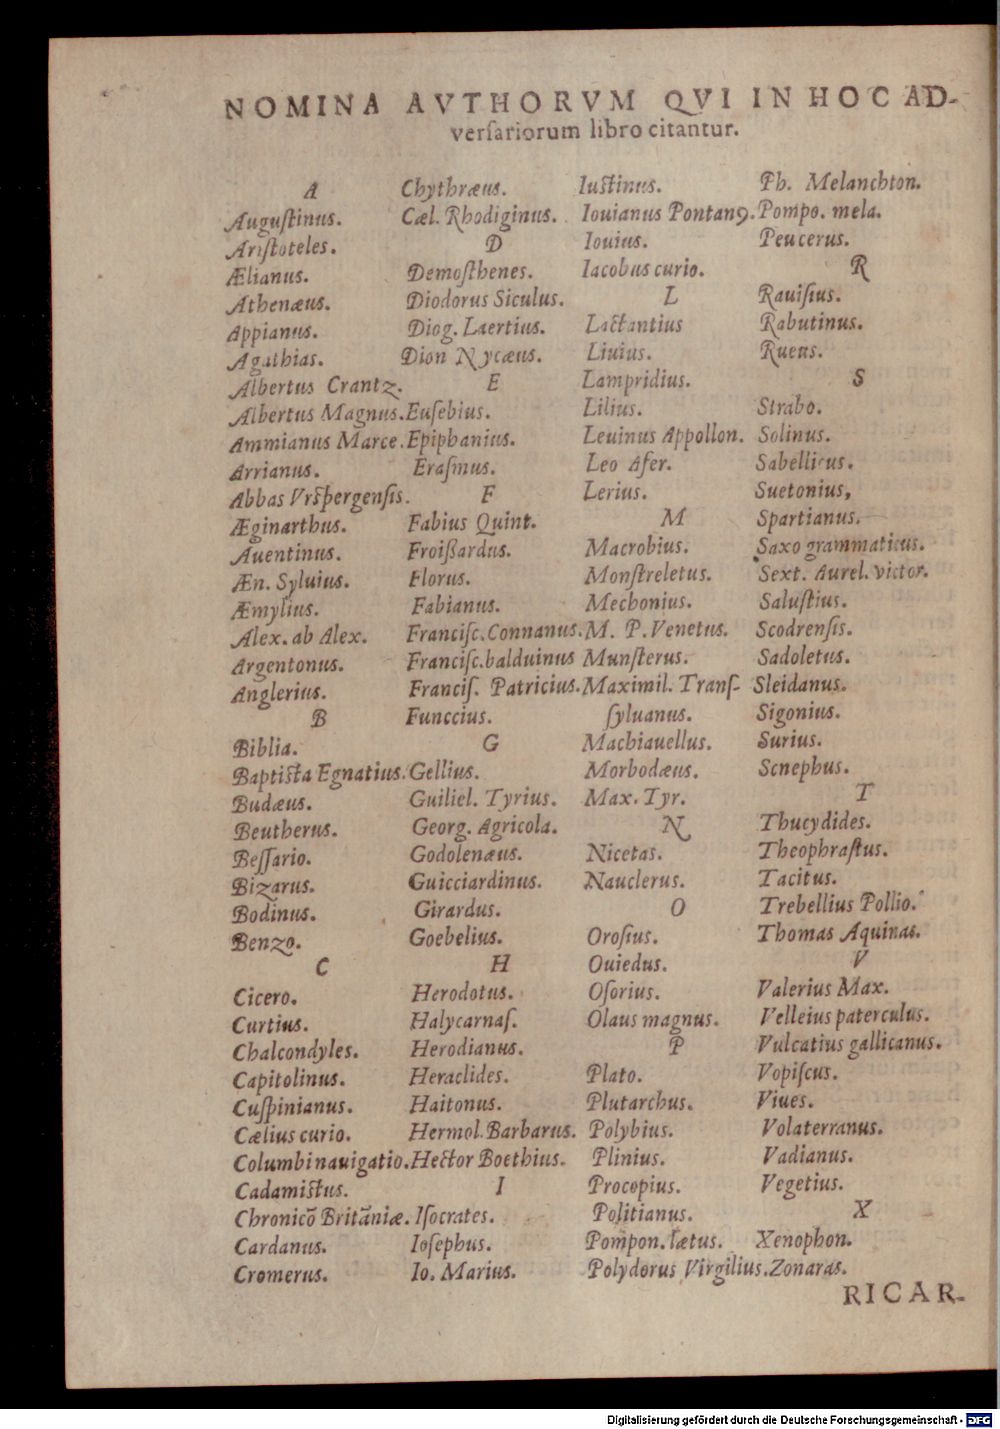 NOMINA AVTHORVM QVI IN HOC AD-
verſariorum libro citantur.
A
Auguſtinus.
Ariſtoteles.
Ælianus.
Athenæus.
Appianus.
Agathias.
Albertus Crantz.
Albertus Magnus.
Ammianus Marce.
Arrianus.
Abbas Vrſpergenſis.
Æginarthus.
Auentinus.
Æn. Syluius.
Æmylius.
Alex. ab Alex.
Argentonus.
Anglerius.
B
Biblia.
Baptiſta Egnatius.
Budæus.
Beutherus.
Beſſario.
Bizarus.
Bodinus.
Benzo.
C
Cicero.
Curtius.
Chalcondyles.
Capitolinus.
Cuſpinianus.
Cælius curio.
Columbi nauigatio.
Cadamiſtus.
Chronicō Britāniæ.
Cardanus.
Cromerus.
Chythræus.
Cæl. Rhodiginus.
D
Demoſthenes.
Diodorus Siculus.
Diog. Laertius.
Dion Nycæus.
E
Euſebius.
Epiphanius.
Eraſmus.
F
Fabius Quint.
Froißardus.
Florus.
Fabianus.
Franciſc. Connanus.
Franciſc. balduinus
Franciſ. Patricius.
Funccius.
G
Gellius.
Guiliel. Tyrius.
Georg. Agricola.
Godolenæus.
Guicciardinus.
Girardus.
Goebelius.
H
Herodotus.
Halycarnaſ.
Herodianus.
Heraclides.
Haitonus.
Hermol. Barbarus.
Hector Boethius.
I
Iſocrates.
Ioſephus.
Io. Marius.
Iuſtinus.
Iouianus Pontanꝰ.
Iouius.
Iacobus curio.
L
Lactantius
Liuius.
Lampridius.
Lilius.
Leuinus Appollon.
Leo Afer.
Lerius.
M
Macrobius.
Monſtreletus.
Mechonius.
M. P. Venetus.
Munſterus.
Maximil. Tranſ-
ſyluanus.
Machiauellus.
Morbodæus.
Max. Tyr.
N
Nicetas.
Nauclerus.
O
Oroſius.
Ouiedus.
Oſorius.
Olaus magnus.
P
Plato.
Plutarchus.
Polybius.
Plinius.
Procopius.
Politianus.
Pompon. lætus.
Polydorus Virgilius.
Ph. Melanchton.
Pompo. mela.
Peucerus.
R
Rauiſius.
Rabutinus.
Rueus.
S
Strabo.
Solinus.
Sabellicus.
Suetonius,
Spartianus.
Saxo grammaticus.
Sext. Aurel. victor.
Saluſtius.
Scodrenſis.
Sadoletus.
Sleidanus.
Sigonius.
Surius.
Scnephus.
T
Thucydides.
Theophraſtus.
Tacitus.
Trebellius Pollio.
Thomas Aquinas.
V
Valerius Max.
Velleius paterculus.
Vulcatius gallicanus.
Vopiſcus.
Viues.
Volaterranus.
Vadianus.
Vegetius.
X
Xenophon.
Zonaras.
RICAR-
Digitalisierung gefördert durch die Deutsche Forschungsgemeinschaft - DFG